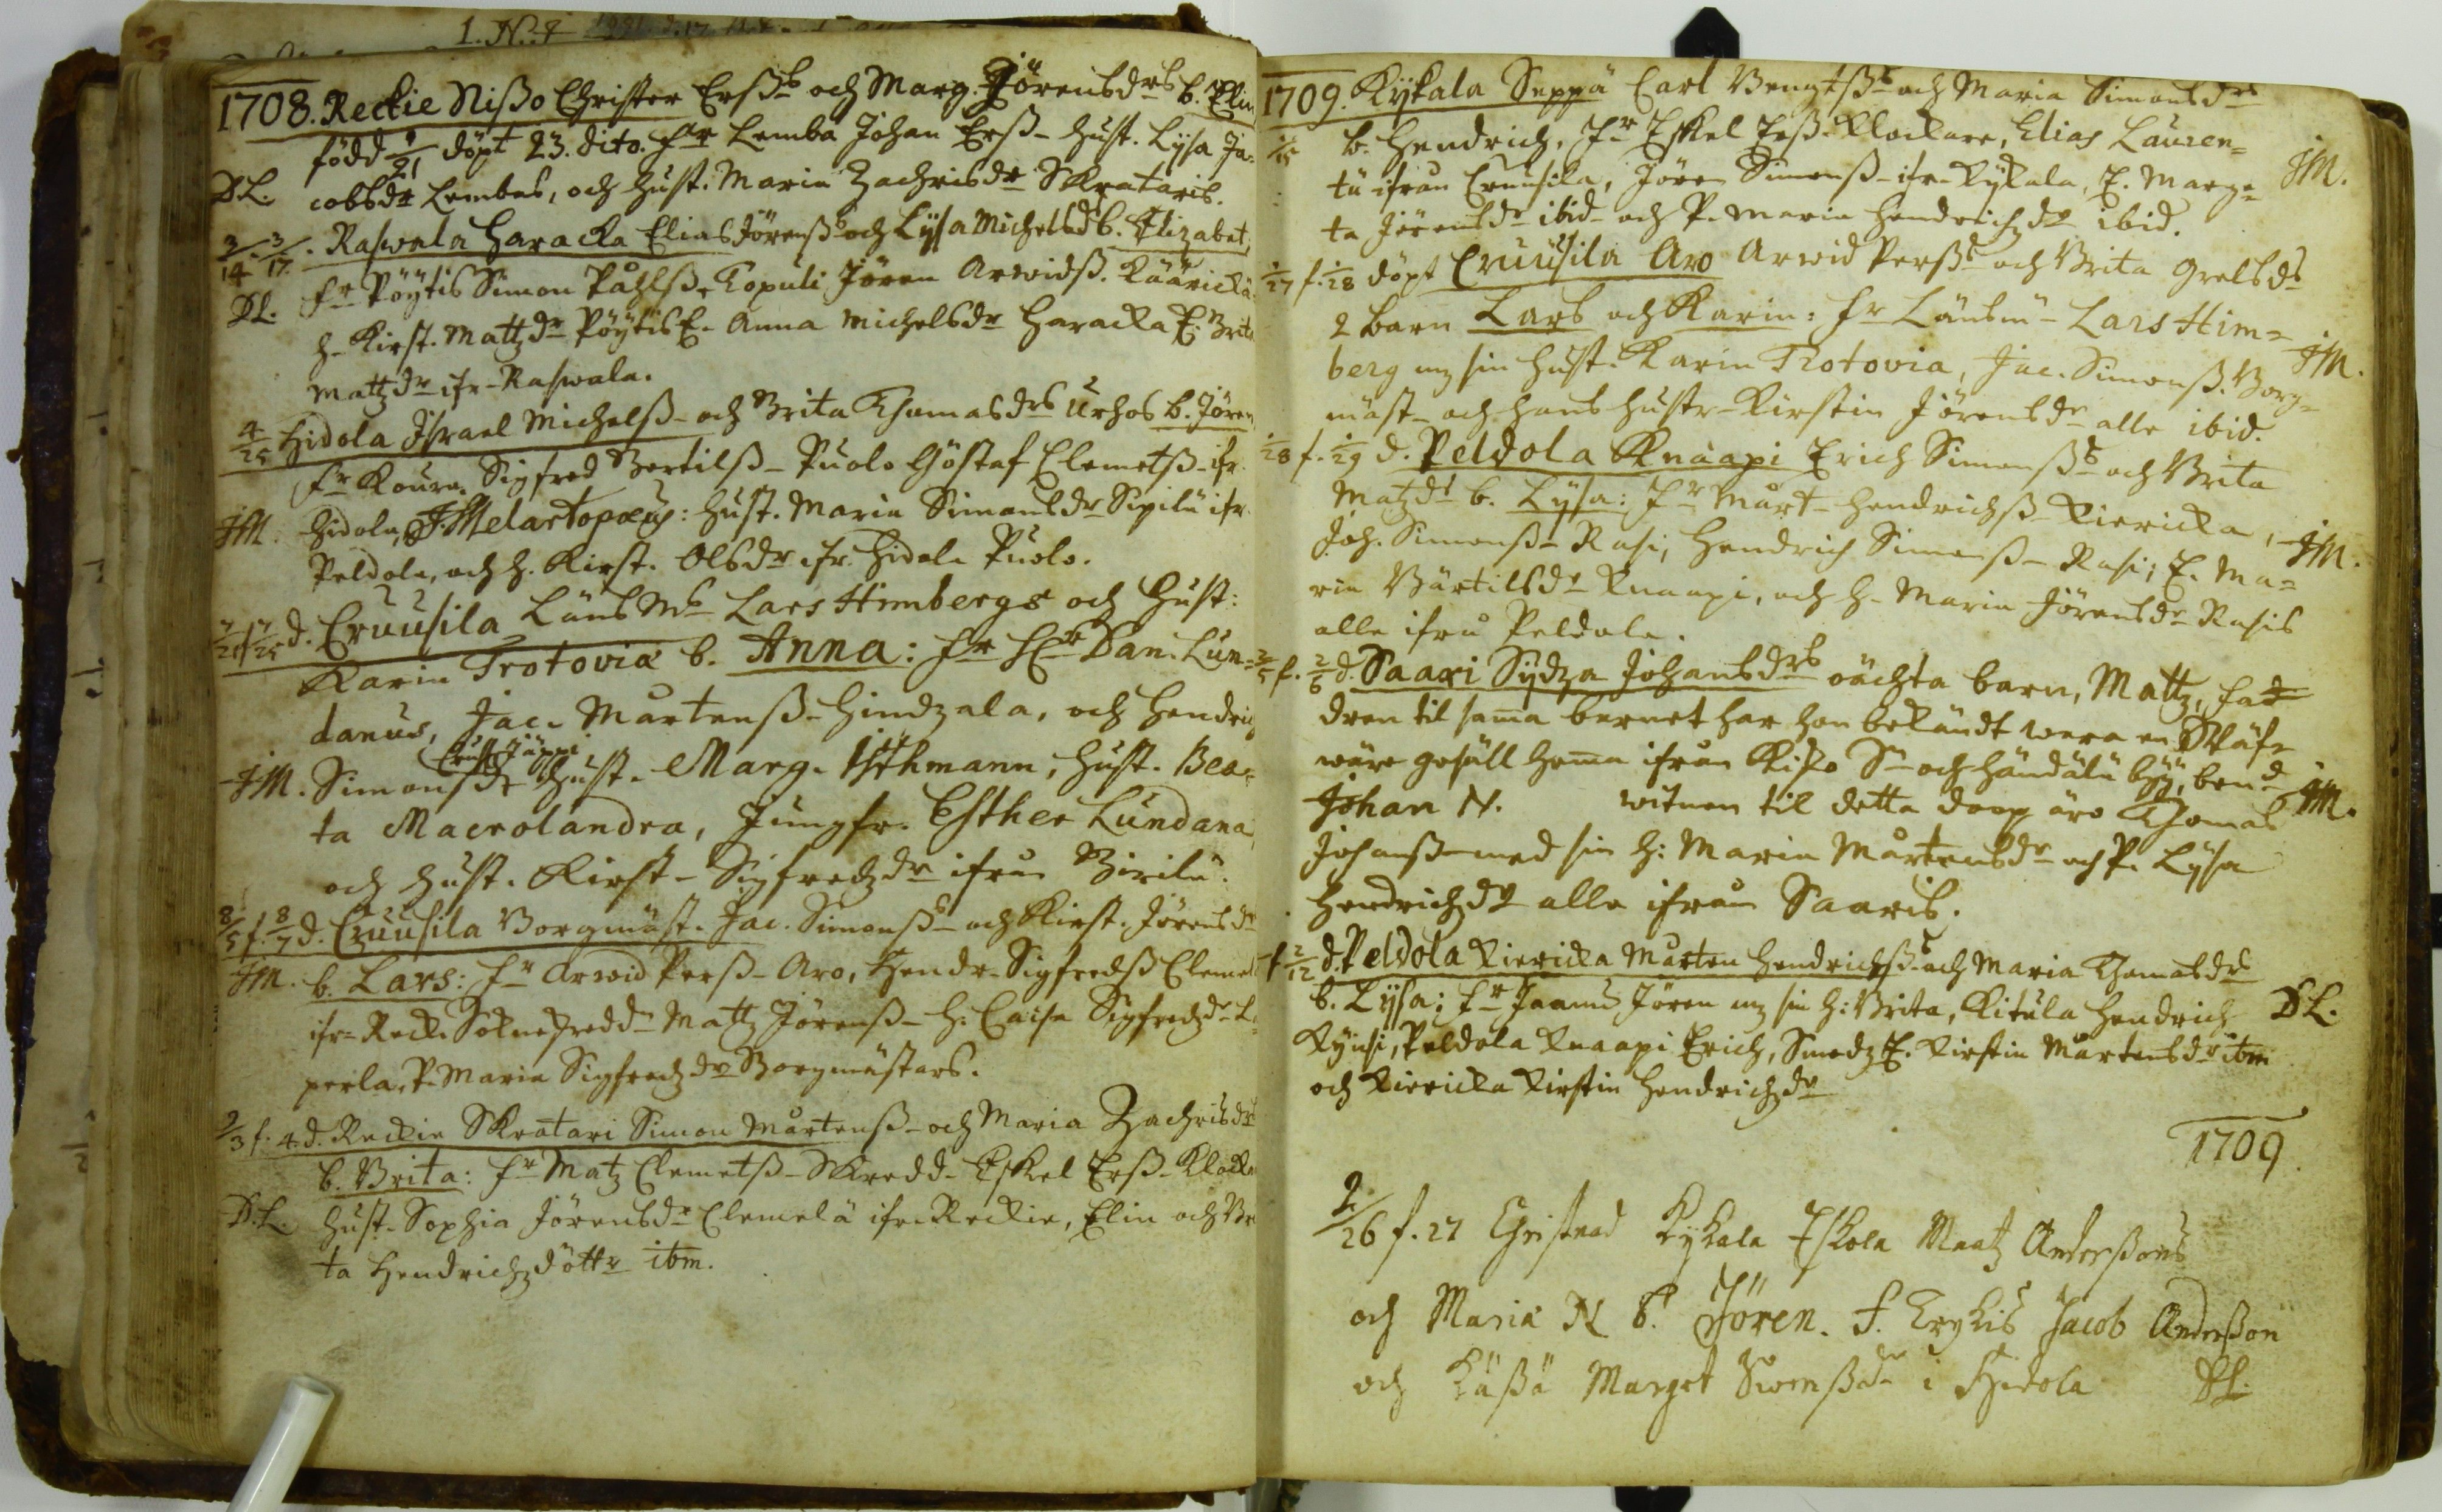 1708. Reckie Nißo Christer Erßs och Marg. Jörensdrs b. Elin
född 1/21 döpt 23. dito. fr Lemba Johan Erß- hust. Lysa Ja=
DL. cobsdr Lembas, och hust. Maria Zachrisdr Skrataris.
3/14 3/17. Raswala Haracka Elias Jörenßs och Lysa Michelsd b. Elizabet,
DL. fr Pöytis Simon Påhlß, Topuli Jören Arwidß. Käärickä
h. Kirst. Mattzdr Pöytis E. Anna Michelsdr Haracka E. Brita
Mattzdr ifr. Raswala.
4/25 Hidola Israel Michelß- och Brita Thomasdrs Urhos b. Jören
fr Koura. Sigfred Bertilß- Puolo Göstaf Clemetß- ifr.
JM. Hidola, J. Melartopæus: hust. Maria Simonsdr Sipilä ifr.
Peldola, och h. Kirst. Olsdr ifr. Hidola Puolo.
7/25 d. Cruusila Länsm. Lars Himbergs och Hust:
Karin Trotovia b. Anna: fr Hr Dan. Lun=
danus, Jac. Mårtenß- Hindzala, och Hendrich
Cruus Jäppi
JM. Simonß- hust. Marg. Isthmann, hust. Bea=
ta Macrolandra, Jungfr. Esther Lundana,
och hust. Kirst. Sigfredzdr ifrån Birilä.
8/5 f. 8/7 d. Cruusila Borgmäst. Jac. Simonßs och Kirst. Jörensdr
JM. b. Lars: fr Arwid Perß- Aro, Hendr. Sigfredß Clemel
ifr. Reck. Sokneskredd. Mattz Jörenß- h. Caisa Sigfredzdr
perla, P. Maria Sigfredzdr Borgmästars.
9/3 f. 4. d. Reckie Skratari Simon Mårtenß- och Maria Zachrisdr
b. Brita: fr Matz Clemetß- Skredd- Eskel Erß- Klockar
D.L. hust. Sophia Jörensdr Clemelä ifr. Reckie, Elin och Br
ta Hendrichzdöttr ibm.
1709. Kykala Seppä Carl Bengtßs och Maria Simonsdrs
1/15 b. Hendrich, Fr Eskel Erß- Klockare, Elias Lauren=
tii ifrån Cruusila, Jören Simonß- ifr. Kykala, E. Marge=
JM.
ta Jörensdr ibid. och P. Maria Hendrichzdr ibid.
1/27 f. 1/28 döpt Cruusila Aro Arwid Perßs och Brita Grelsdrs
2 barn Lars och Karin: fr Länsm- Lars Him=
berg mz sin hust. Karin Trotovia, Jac. Simonß. Borg=
JM.
mäst- och hans hustr- Kirstin Jörensdr alle ibid.
1/28 f. 1/29 d. Peldola Knaapi Erich Simonßs och Brita
Matzdr b. Lysa: Fr Mårt- Hendrichß- Kiericka,
JM.
Joh. Simonß- Rasi, Hendrich Simonß- Rasi; E. Ma=
ria Bärtilsdr Knaapi, och h. Maria Jörensdr Rasis
alle ifrån Peldola.
2/5 f. 2/6 d. Saari Sydza Johansdrs oächta barn, Mattz, fad
dren til sama barnet har hon bekändt wara en Skäf=
ware gesäll hema ifrån Kisko Sn och Händälä byy, bend
JM.
Johan N. witnen til detta doop äro Thomas
Johanß- med sin h: Maria Mårtensdr och P. Lysa
Hendrichzdr alle ifrån Saaris.
f. 2/12 d. Peldola Kiericka Mårten Hendrichßs och Maria Thomasdrs
b. Lysa; Fr Jaanus Jören mz sin h: Brita, Kitula Hendrich
DL.
Kynsi, Peldola Knaapi Erich, Smedz E. Kirstin Mårtensdr ibm
och Kiericka Kirstin Hendrichzdr
1709
2/26 f. 27 Christnad Kykala Eskola Maatz Anderßons
och Maria N b. Jören. f. Trykis Jacob Anderßon
och Käßä Marget Swenßdr i Hidola DL.